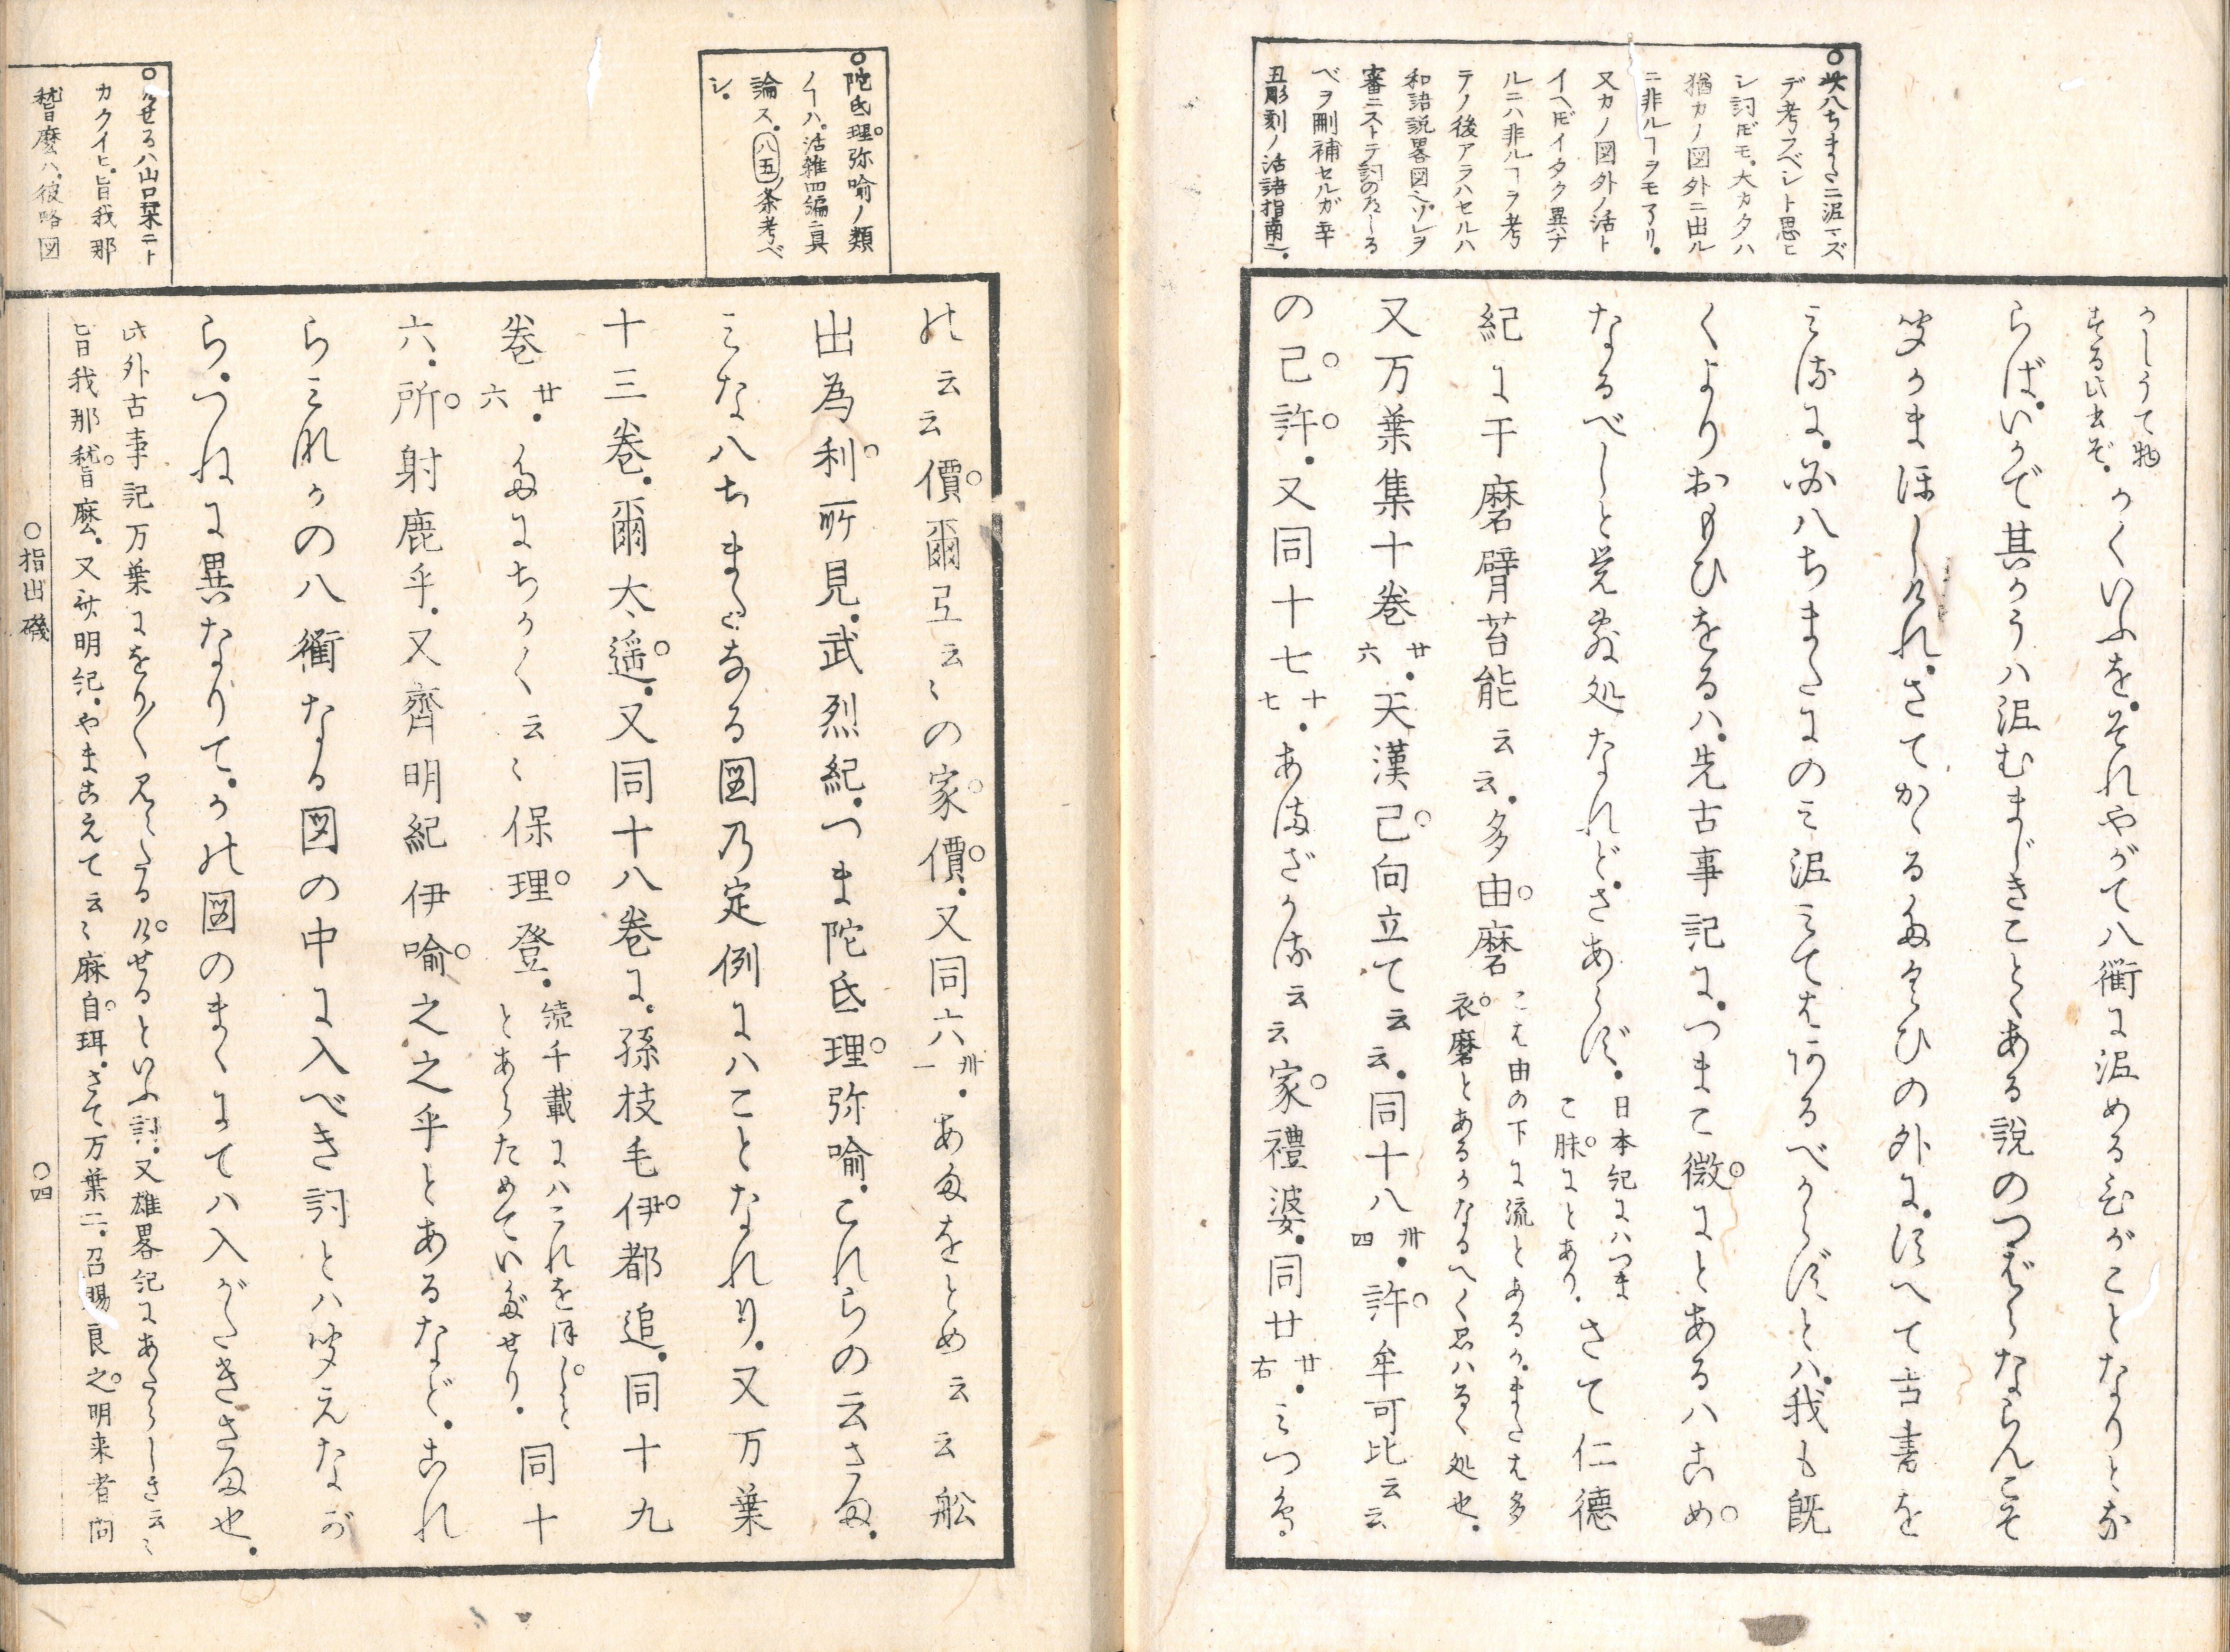 ○此八ちまたニ泥マズ
デ考フベシト思ヒ
シ詞ドモ。大カタハ
猶カノ図外ニ出ル
ニ非ルヿヲモアリ。
又カノ図外ノ活ト
イヘドイタク異ナ
ルニハ非ルヿヲ考
テノ後アラハセルハ
和語説畧図ニソレヲ
審ニストテ詞のたしる
ベヲ刪補セルガ辛
丑彫刻ノ活語指南ニ。
かしうて物
まる此まぞ。かくいふを。それやがて八衢に泥める
ことなりとな
らば。いかで其かうハ泥むまじきことゝある説のつばらならんこそ
きかまほしけれ。さてかゝるたぐひの外に。すへて古書を
みるに。必八ちまたにのミ泥ミてはあるべからずとハ。我も既
くよりおもひをるハ。先古事記に。つまこ微にとあるハこめ
なるべしと覚ゆる処なれど。さあらず。
日本記にハつま
こ昧にとあり。
さて仁徳
紀に干磨臂苔能云云。多由磨
こは由の下に流とあるか。または多
衣磨とあるかなるべく思ハるゝ処也。
又万葉集十巻廿六。天漢己向立て云云。同十八卅四。許牟可比云云
の己許。又同十七十七。あまざかる云云家禮婆。同廿廿右。ミつき
○陀氐理弥喩ノ類
ノヿハ。活雑四編ニ具
論ス。八五条考ベ
シ。
○けせるハ山口栞ニト
カクイヒ。旨我那
嵆麼ハ。彼略図
の云云價爾弖云〻の家價。又同六卅一。あまをとめ云云舩
出為利所見。武烈紀。つま陀氐理弥喩。これらの云さま。
ミな八ちまたなる図乃定例にハことなれり。又万葉
十三巻。爾太遥。又同十八巻に。孫枝毛伊都追。同十九
巻廿六。たにちかく云〻保理登。
続千載にハこれをほしと
とあらためていだせり。
同十
六。所射鹿乎。又齊明紀伊喩之之乎とあるなど。これ
らミれかの八衢なる図の中に入べき詞とハきえなが
ら。つねに異なりて。かの図のまゝにてハ入がたきさま也。
此外古事記万葉にをり〱見えたるけせるといふ詞。又雄畧紀にあたらしき云〻
旨我那嵆旨麼。又斉明紀。やまこえて云〻麻自珥。さて万葉二。召賜良之。明来者問
○指出磯
○四